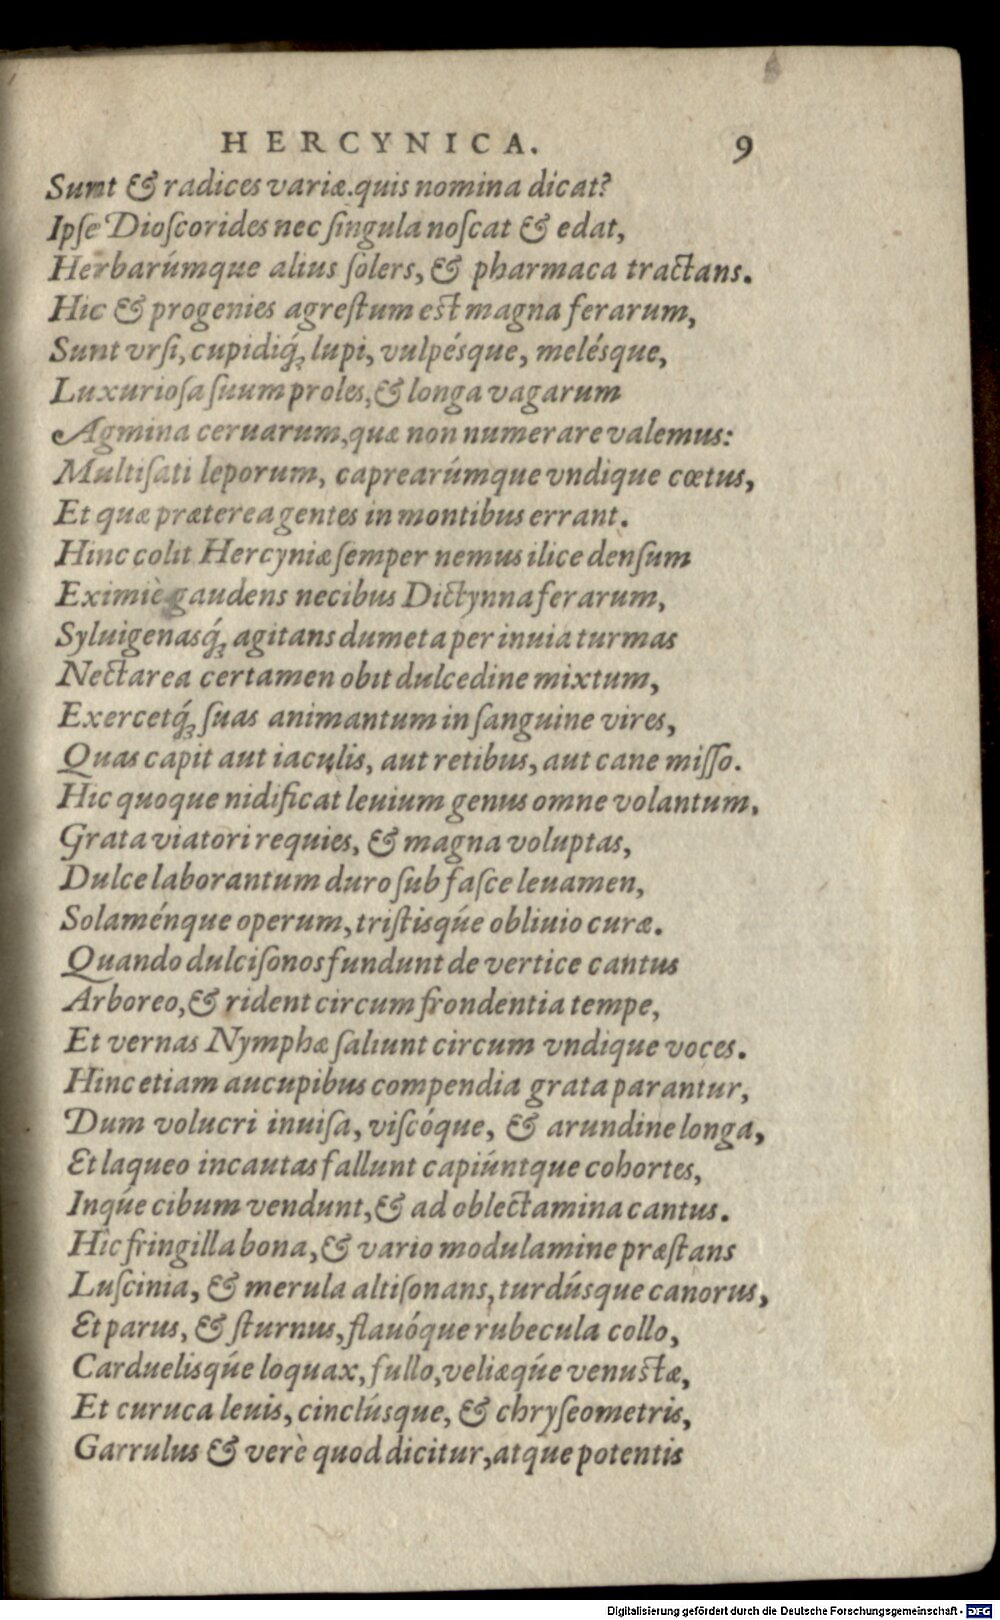 HERCYNICA. 9
Sunt & radices variæ. quis nomina dicat?
Ipſe Dioſcorides nec ſingula noſcat & edat,
Herbarúmque alius ſolers, & pharmaca tractans.
Hic & progenies agreſtum est magna ferarum,
Sunt vrſi, cupidiq́;, lupi, vulpésque, melésque,
Luxurioſa ſuum proles, & longa vagarum
Agmina ceruarum, quæ non numerare valemus:
Multi ſati leporum, caprearúmque vndique cœtus,
Et quæ præterea gentes in montibus errant.
Hinc colit Hercyniæ ſemper nemus ilice denſum
Eximiè gaudens necibus Dictynna ferarum,
Syluigenasq́; agitans dumeta per inuia turmas
Nectarea certamen obit dulcedine mixtum,
Exercetq́; ſuas animantum in ſanguine vires,
Quas capit aut iaculis, aut retibus, aut cane miſſo.
Hic quoque nidificat leuium genus omne volantum,
Grata viatori requies, & magna voluptas,
Dulce laborantum duro ſub faſce leuamen,
Solaménque operum, triſtisq́ue obliuio curæ.
Quando dulciſonos fundunt de vertice cantus
Arboreo, & rident circum frondentia tempe,
Et vernas Nymphæ ſaliunt circum vndique voces.
Hinc etiam aucupibus compendia grata parantur,
Dum volucri inuiſa, viſcóque, & arundine longa,
Et laqueo incautas fallunt capiúntque cohortes,
Inq́ue cibum vendunt, & ad oblectamina cantus.
Hîc fringilla bona, & vario modulamine præſtans
Luſcinia, & merula altiſonans, turdúsque canorus,
Et parus, & ſturnus, flauóque rubecula collo,
Carduelisq́ue loquax, fullo, veliæq́ue venustæ,
Et curuca leuis, cinclúsque, & chryſeometris,
Garrulus & verè quod dicitur, atque potentis
Digitalisierung gefördert durch die Deutsche Forschungsgemeinschaft - DFG